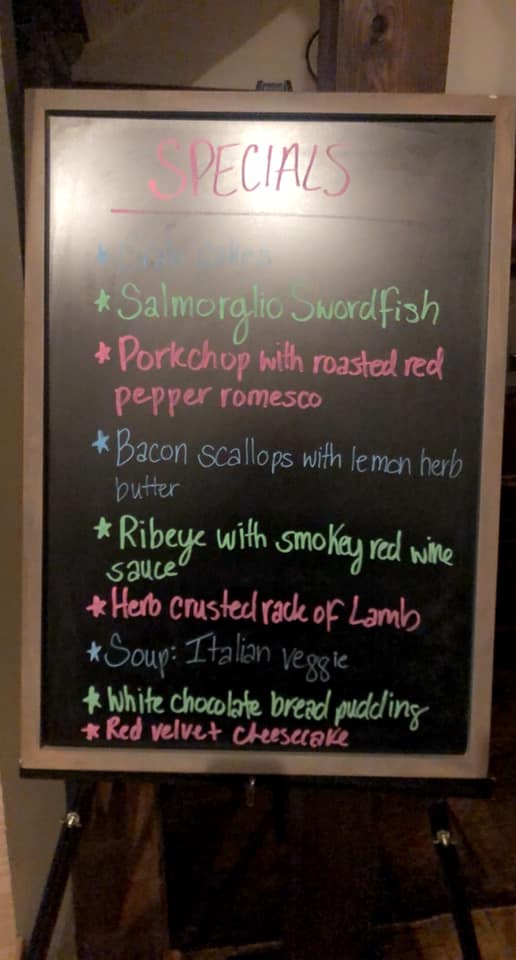 SPECIALS
* Salmorglio Swordfish
* Porkchop with roasted red
pepper romesco
* Bacon scallops with lemon herb
butter
* Ribeye with smokey red wine
sauce
* Herb crusted rack of Lamb
* Soup: Italian veggie
* White chocolate bread pudding
* Red velvet cheesecake